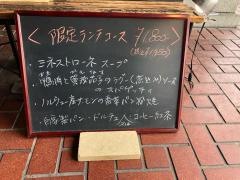 < 限定ランチコース ¥1,800 >
・ミネストローネスープ
・鴨肉と 茄子のラグー ソースのスパゲッティ
・ノルウェー産サーモンの香草パン粉焼
・自家製パン・ドルチェ・コーヒーor紅茶